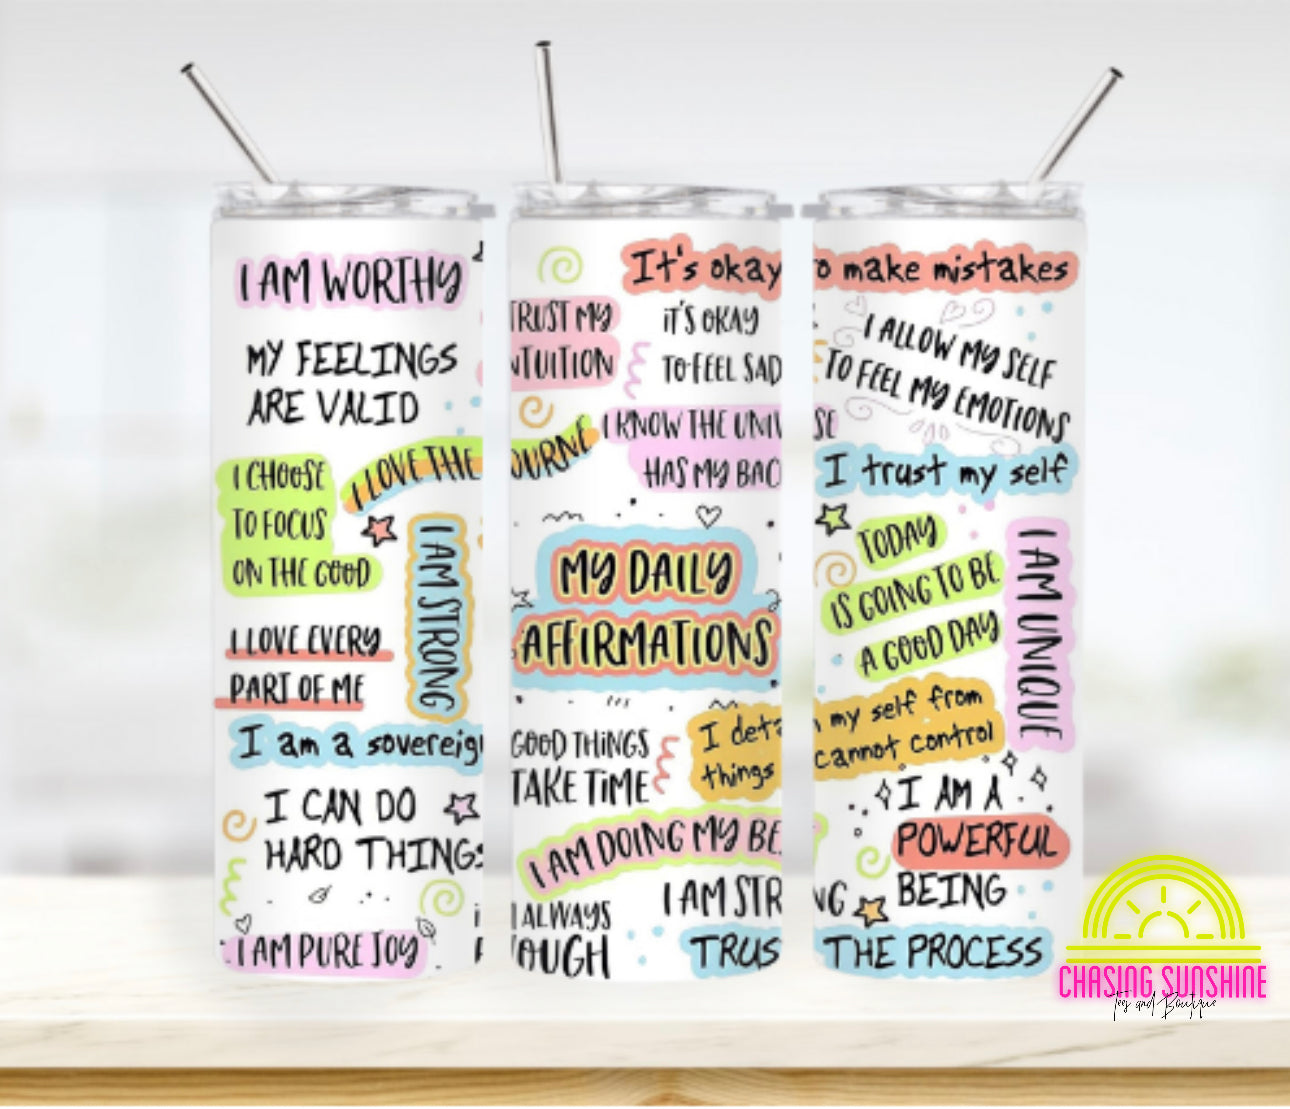 I AM WORTHY
MY FEELINGS
ARE VALID
I CHOOSE
TO FOCUS
ON THE GOOD
I LOVE THE
I AM STRONG
I LOVE EVERY
PART OF ME
I am a sovereig
I CAN DO
HARD THINGS
I AM PURE JOY
It's okay
TRUST MY
NTUITION
iT'S OKAY
TO FEEL SAD
OURNE
I KNOW THE UNIV
HAS MY BAC
MY DAILY
AFFIRMATIONS
GOOD THINGS
TAKE TiME
I deta
things
I AM DOING MY BE
I ALWAYS
OUGH
I AM STR
TRUS
o make mistakes
I ALLOW MY SELF
TO FEEL MY EMOTIONS
SE
I trust my self
TODAY
IS GOING TO BE
A GOOD DAY
I AM UNIQUE
my self from
cannot control
I AM A
POWERFUL
BEING
NG
THE PROCESS
CHASING SUNSHINE
Tees and Boutique